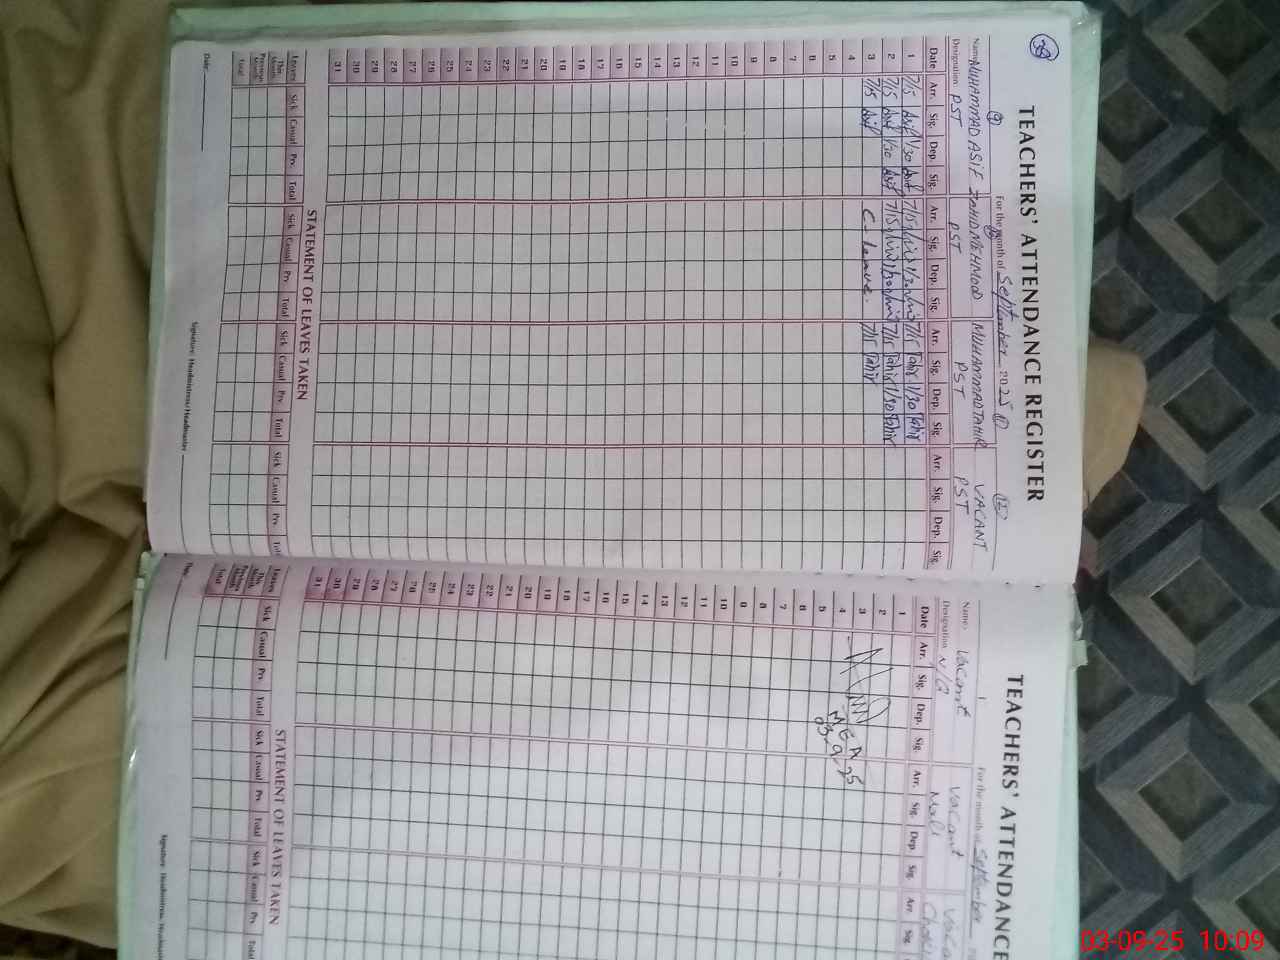 38
TEACHERS' ATTENDANCE REGISTER
For the month of September 2025
9 10 11 12
Name: MUHAMMAD ASIF ZAHID MEHMOOD MUHAMMAD TAHIR VACANT
Designation PST PST PST PST
Date Arr. Sig. Dep. Sig. Arr. Sig. Dep. Sig. Arr. Sig. Dep. Sig. Arr. Sig. Dep. Sig.
1 7/15 Asif 1/30 Asif 7/15 7/15 Tahir 1/30 Tahir
2 7/15 Asif 1/30 Asif 7/15 7/15 Tahir 1/30 Tahir
3 7/15 Asif C-Leave. 7/15 Tahir
4
5
6
7
8
9
10
11
12
13
14
15
16
17
18
19
20
21
22
23
24
25
26
27
28
29
30
31
STATEMENT OF LEAVES TAKEN
Leaves Sick Casual Prv. Total Sick Casual Prv. Total Sick Casual Prv. Total Sick Casual Prv. Total
This Month
Previous Month
Total
Date: Signature: Headmistress/Headmaster
TEACHERS' ATTENDANCE
For the month of September 20
Name: Vacant Vacant
Designation N/Q Mali
Date Arr. Sig. Dep. Sig. Arr. Sig. Dep. Sig. Arr. Sig.
1
2
3
4
MEA
03-9-25
5
6
7
8
9
10
11
12
13
14
15
16
17
18
19
20
21
22
23
24
25
26
27
28
29
30
31
STATEMENT OF LEAVES TAKEN
Leaves Sick Casual Prv. Total Sick Casual Prv. Total Sick Casual Prv. Total
This Month
Previous Month
Total
Date: Signature: Headmistress/Headmaster
03-09-25 10:09